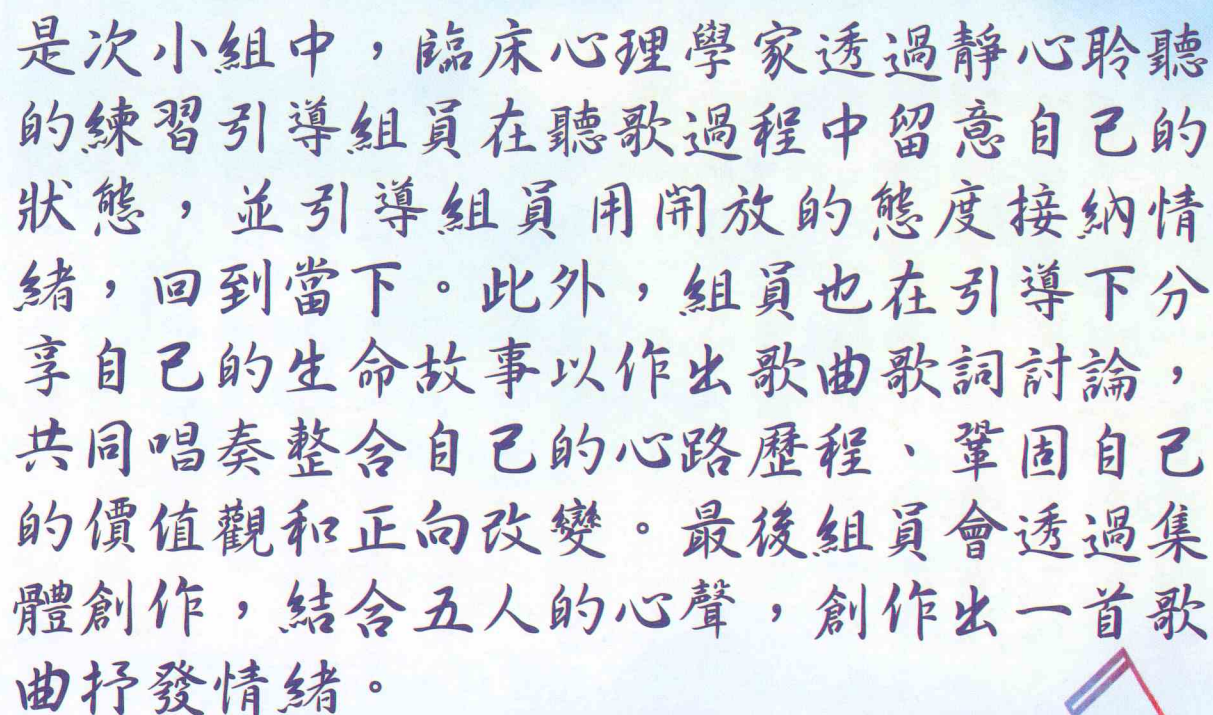 是次小組中，臨床心理學家透過靜心聆聽
的練習引導組員在聽歌過程中留意自己的
狀態，並引導組員用開放的態度接納情
緒，回到當下。此外，組員也在引導下分
享自己的生命故事以作出歌曲歌詞討論，
共同唱奏整合自己的心路歷程、鞏固自己
的價值觀和正向改變。最後組員會透過集
體創作，結合五人的心聲，創作出一首歌
曲抒發情緒。